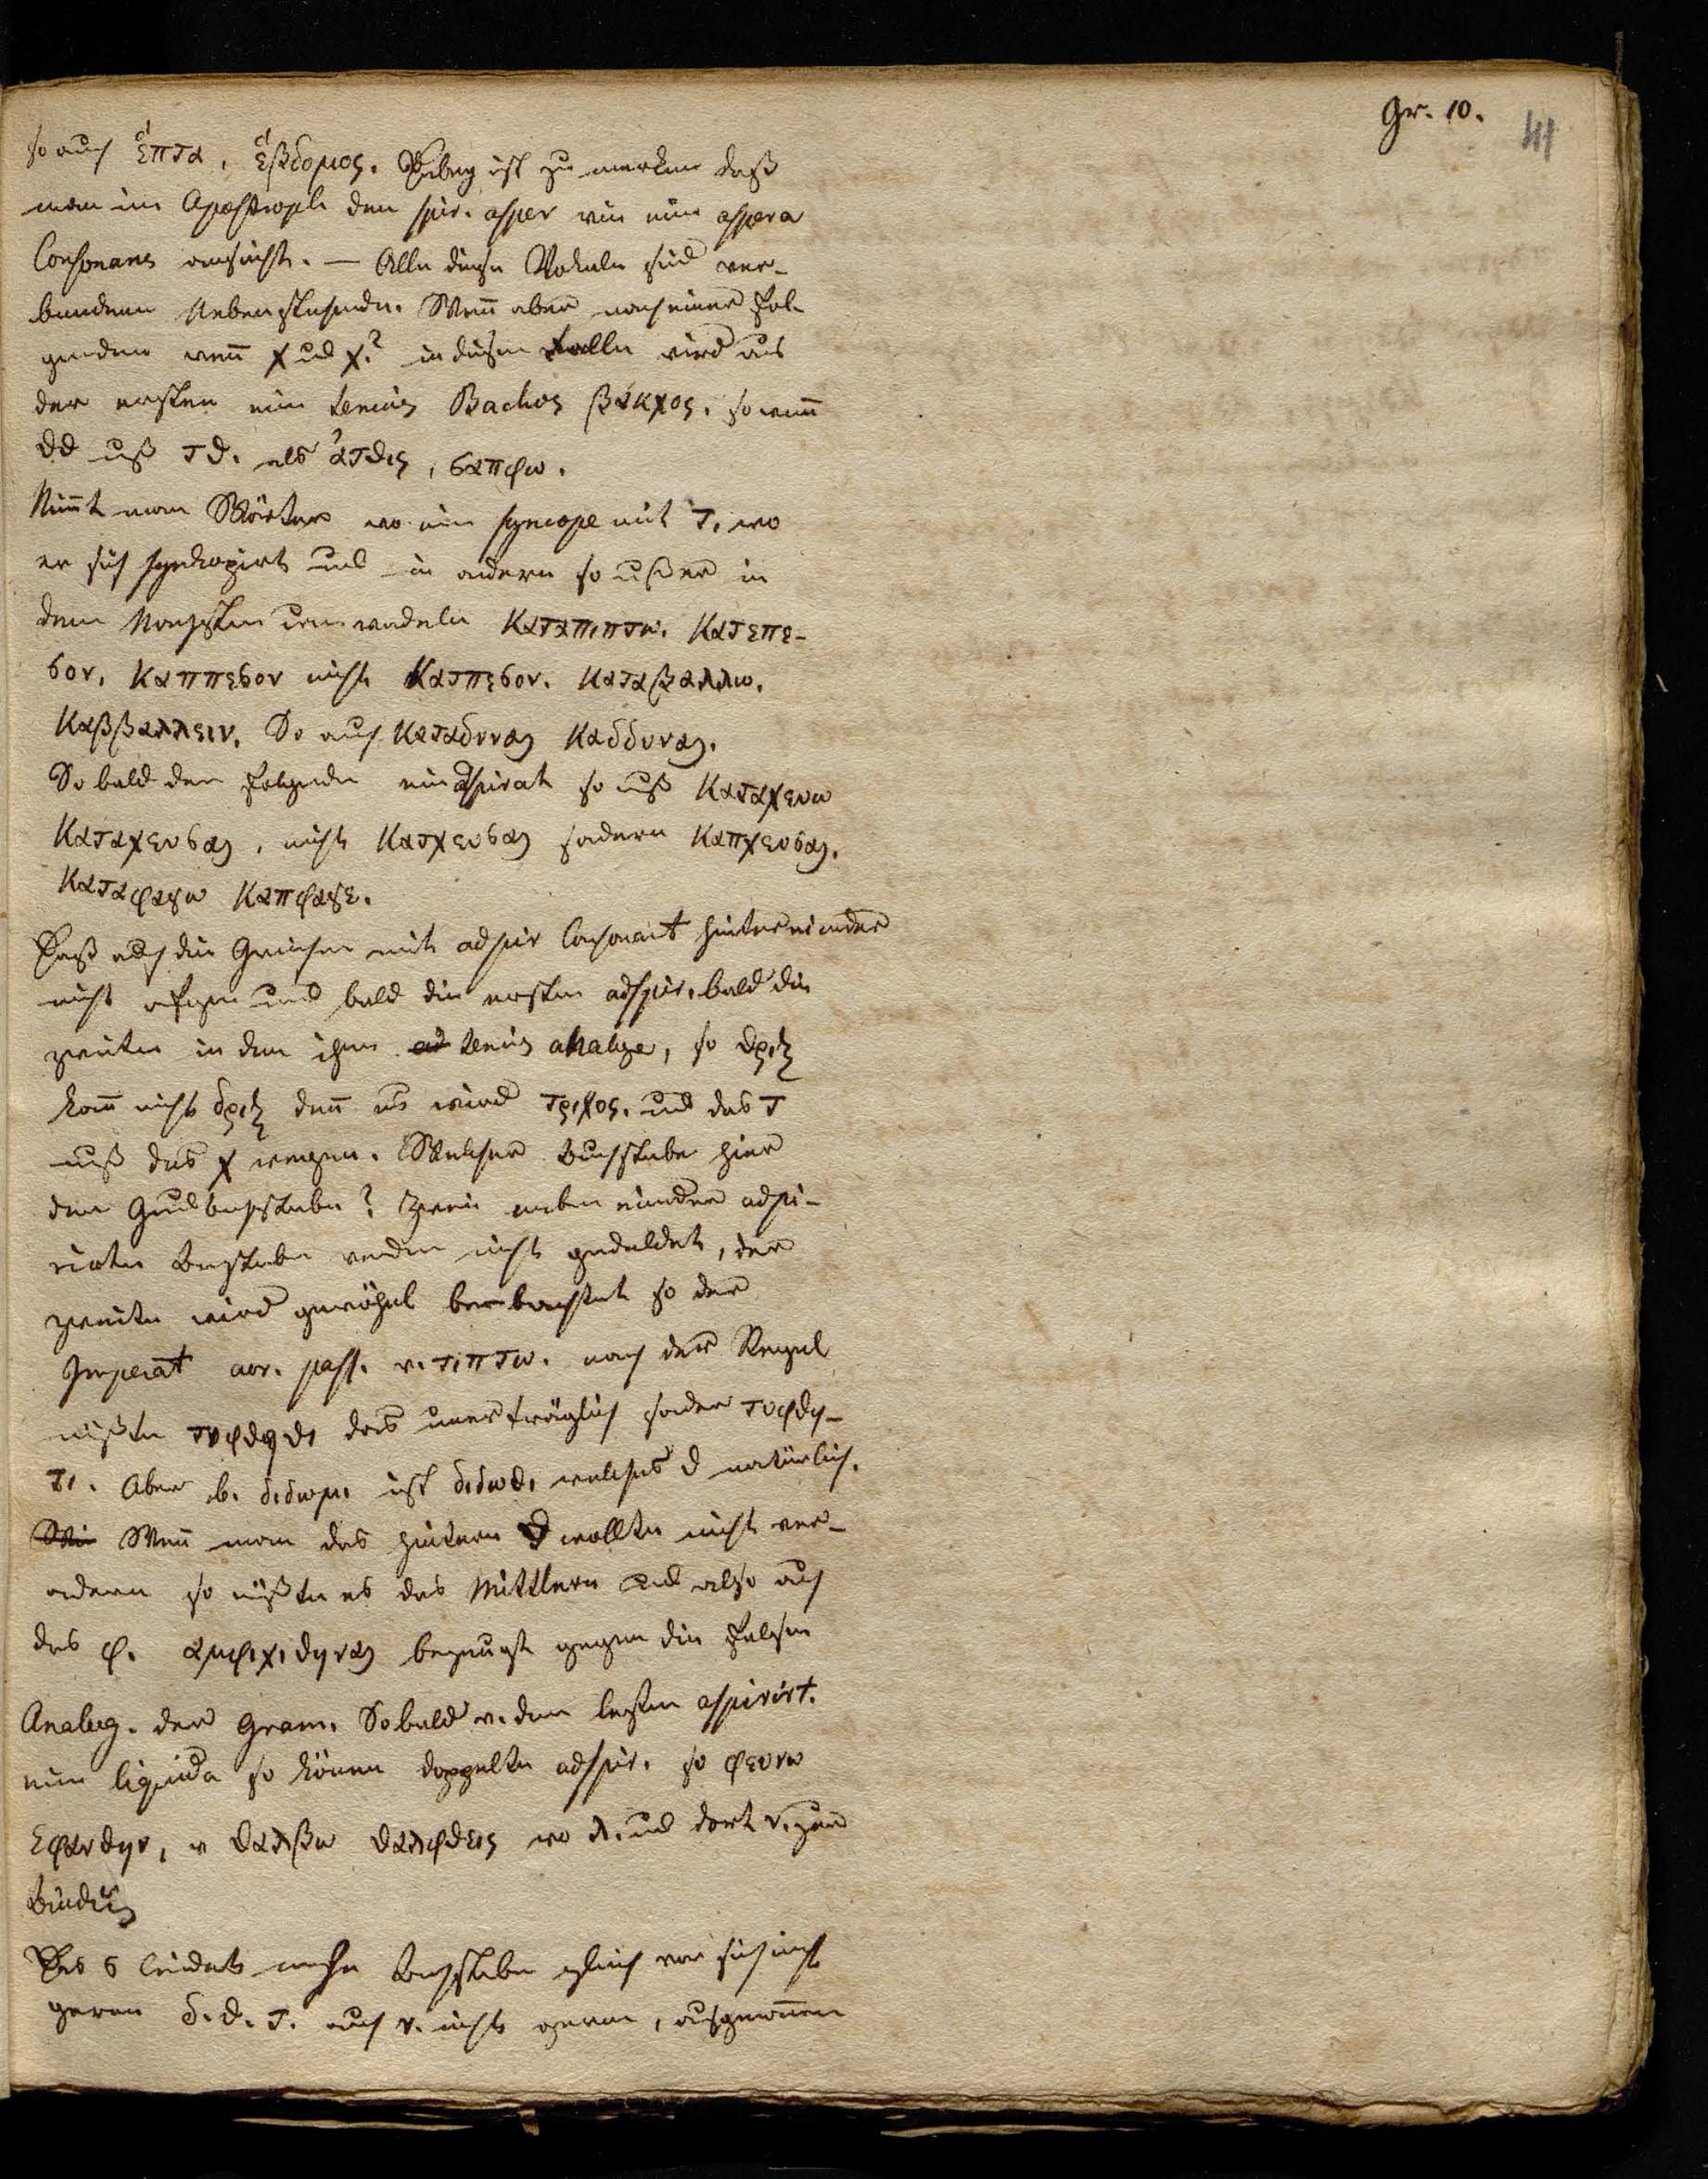 Gr. 10.
41
so auch ἑπτα, ἑβδομος. Übrig ist zu merken daß
man im Apostroph den spir. asper wie eine aspera
Consonans ansieht. — Alle diese Vokale sind ver-
bundene Nebenstehende. Wenn aber nach einer fol-
genden wenn χ und χ? in diesem Falle wird aus
der ersten eine tenuis Bachos βακχος, so wenn
ϑϑ muß τϑ. als ἀτϑις, σαπφω.
Nimmt man Wörter wo eine syncope mit τ, wo
er sich synkopirt und in andern so muß er in
dem Nächsten umwandeln καταπιπτω. κατεπε-
σον, καππεσον nicht κατπεσον. καταβαλλω.
καββαλλειν. So auch καταδυναι καδδυναι.
So bald der folgende ein aspirat so muß καταχευω
καταχευσαι, nicht κατχευσαι sondern καπχευσαι.
καταφαγω καπφαγε.
Daß also die Griechen mit adspir Consonant hintereinander
nicht und bald die ersten adspir. bald die
zweite in den ihre tenuis analoge, so ϑριξ
kann nicht δριξ denn es wird τριχος. und das τ
muß das χ wegen. Welcher Buchstabe hier
der Grundbuchstabe? Zwei neben einander adspi-
rirte Buchstaben werden nicht geduldet, der
zweite wird gewöhnl beobachtet so der
Imperat aor. pass. v. τιπτω. nach der Regel
müßte τυφϑηϑι das unerträglich sonder τυφϑη-
τι. Aber b. διδωμι ist διδωϑι welches ϑ natürlich.
Wenn man das hintere ϑ wollte nicht ver-
ändern so müßte es das Mittlere und also auch
das φ. αμφιχιϑηναι bezeugt gegen die falschen
Analog. der Gram. Sobald v. den letzten aspirirt.
eine liquida so können doppelte adspir. so φευνω
εφανϑην, v ϑαλβω ϑαλφϑεις wo λ. und dort ν. zur
Bindung
Das σ leidet mehre Buchstaben gleich vor sich nicht
gerne δ. ϑ. τ. auch ν. nicht gerne, ausgenommen